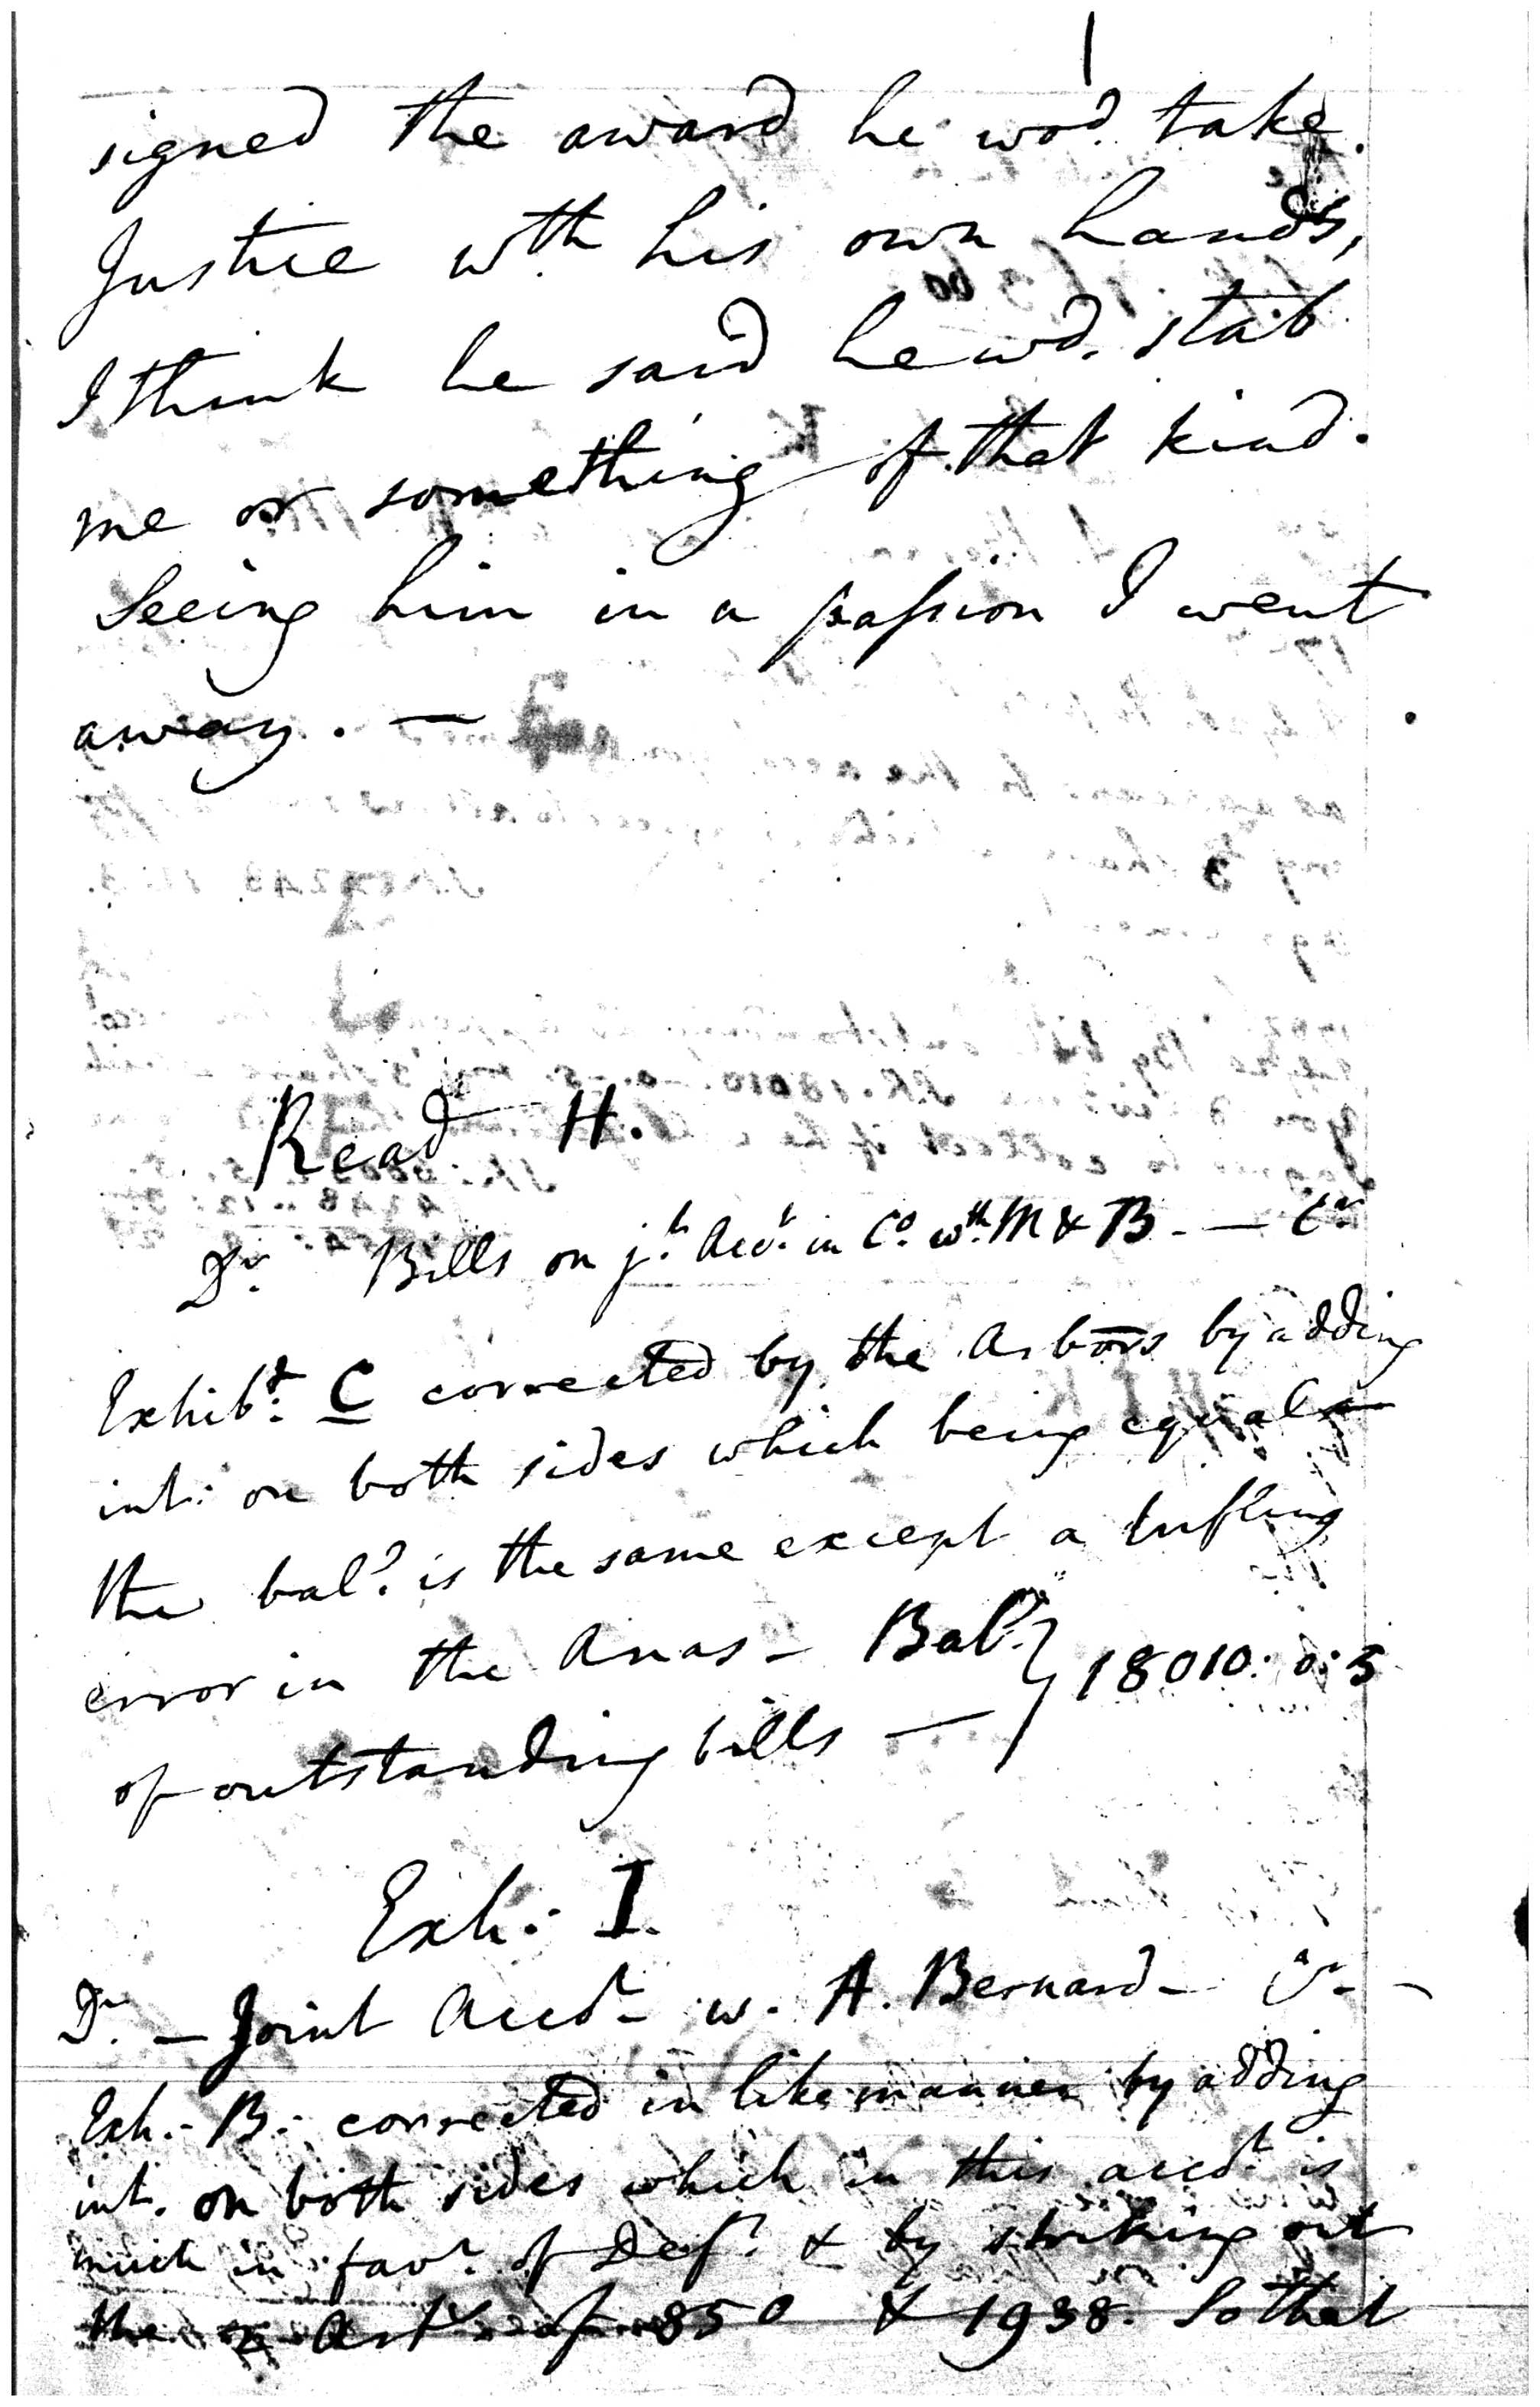 signed the award he wod. take
Justice wth. his own hands,
I think he said he wd. stab
me or something of that kind.
Seeing him in a passion I went
away. —
Read H.
Dr. Bills on jt. Acct. in Co. wth. M & B. — Cr
Exhibt. C corrected by the Arbors by adding
int: on both sides which being equal
the bale. is the same except a trifling
error in the Anas - Bale. } 18010: 0: 5
of outstanding bills —
Exh: I.
Dr. — Joint Acct. w. A. Bernard - Cr. -
Exh:- B:- corrected in like manner by adding
int. on both sides which in this acct. is
much in favr. of Deft. & by striking out
the 2 Arts. of 850 & 1938. So that